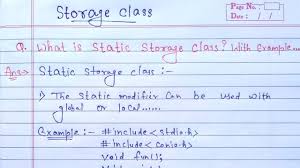 Storage Class
Page No:
Date: / /
Q. What is Static Storage Class? With Example...
Ans→ Static storage class :-
1) The static modifier Can be used with
global or local......
Example :- #include<stdio.h>
#include<conio.h>
void fun();